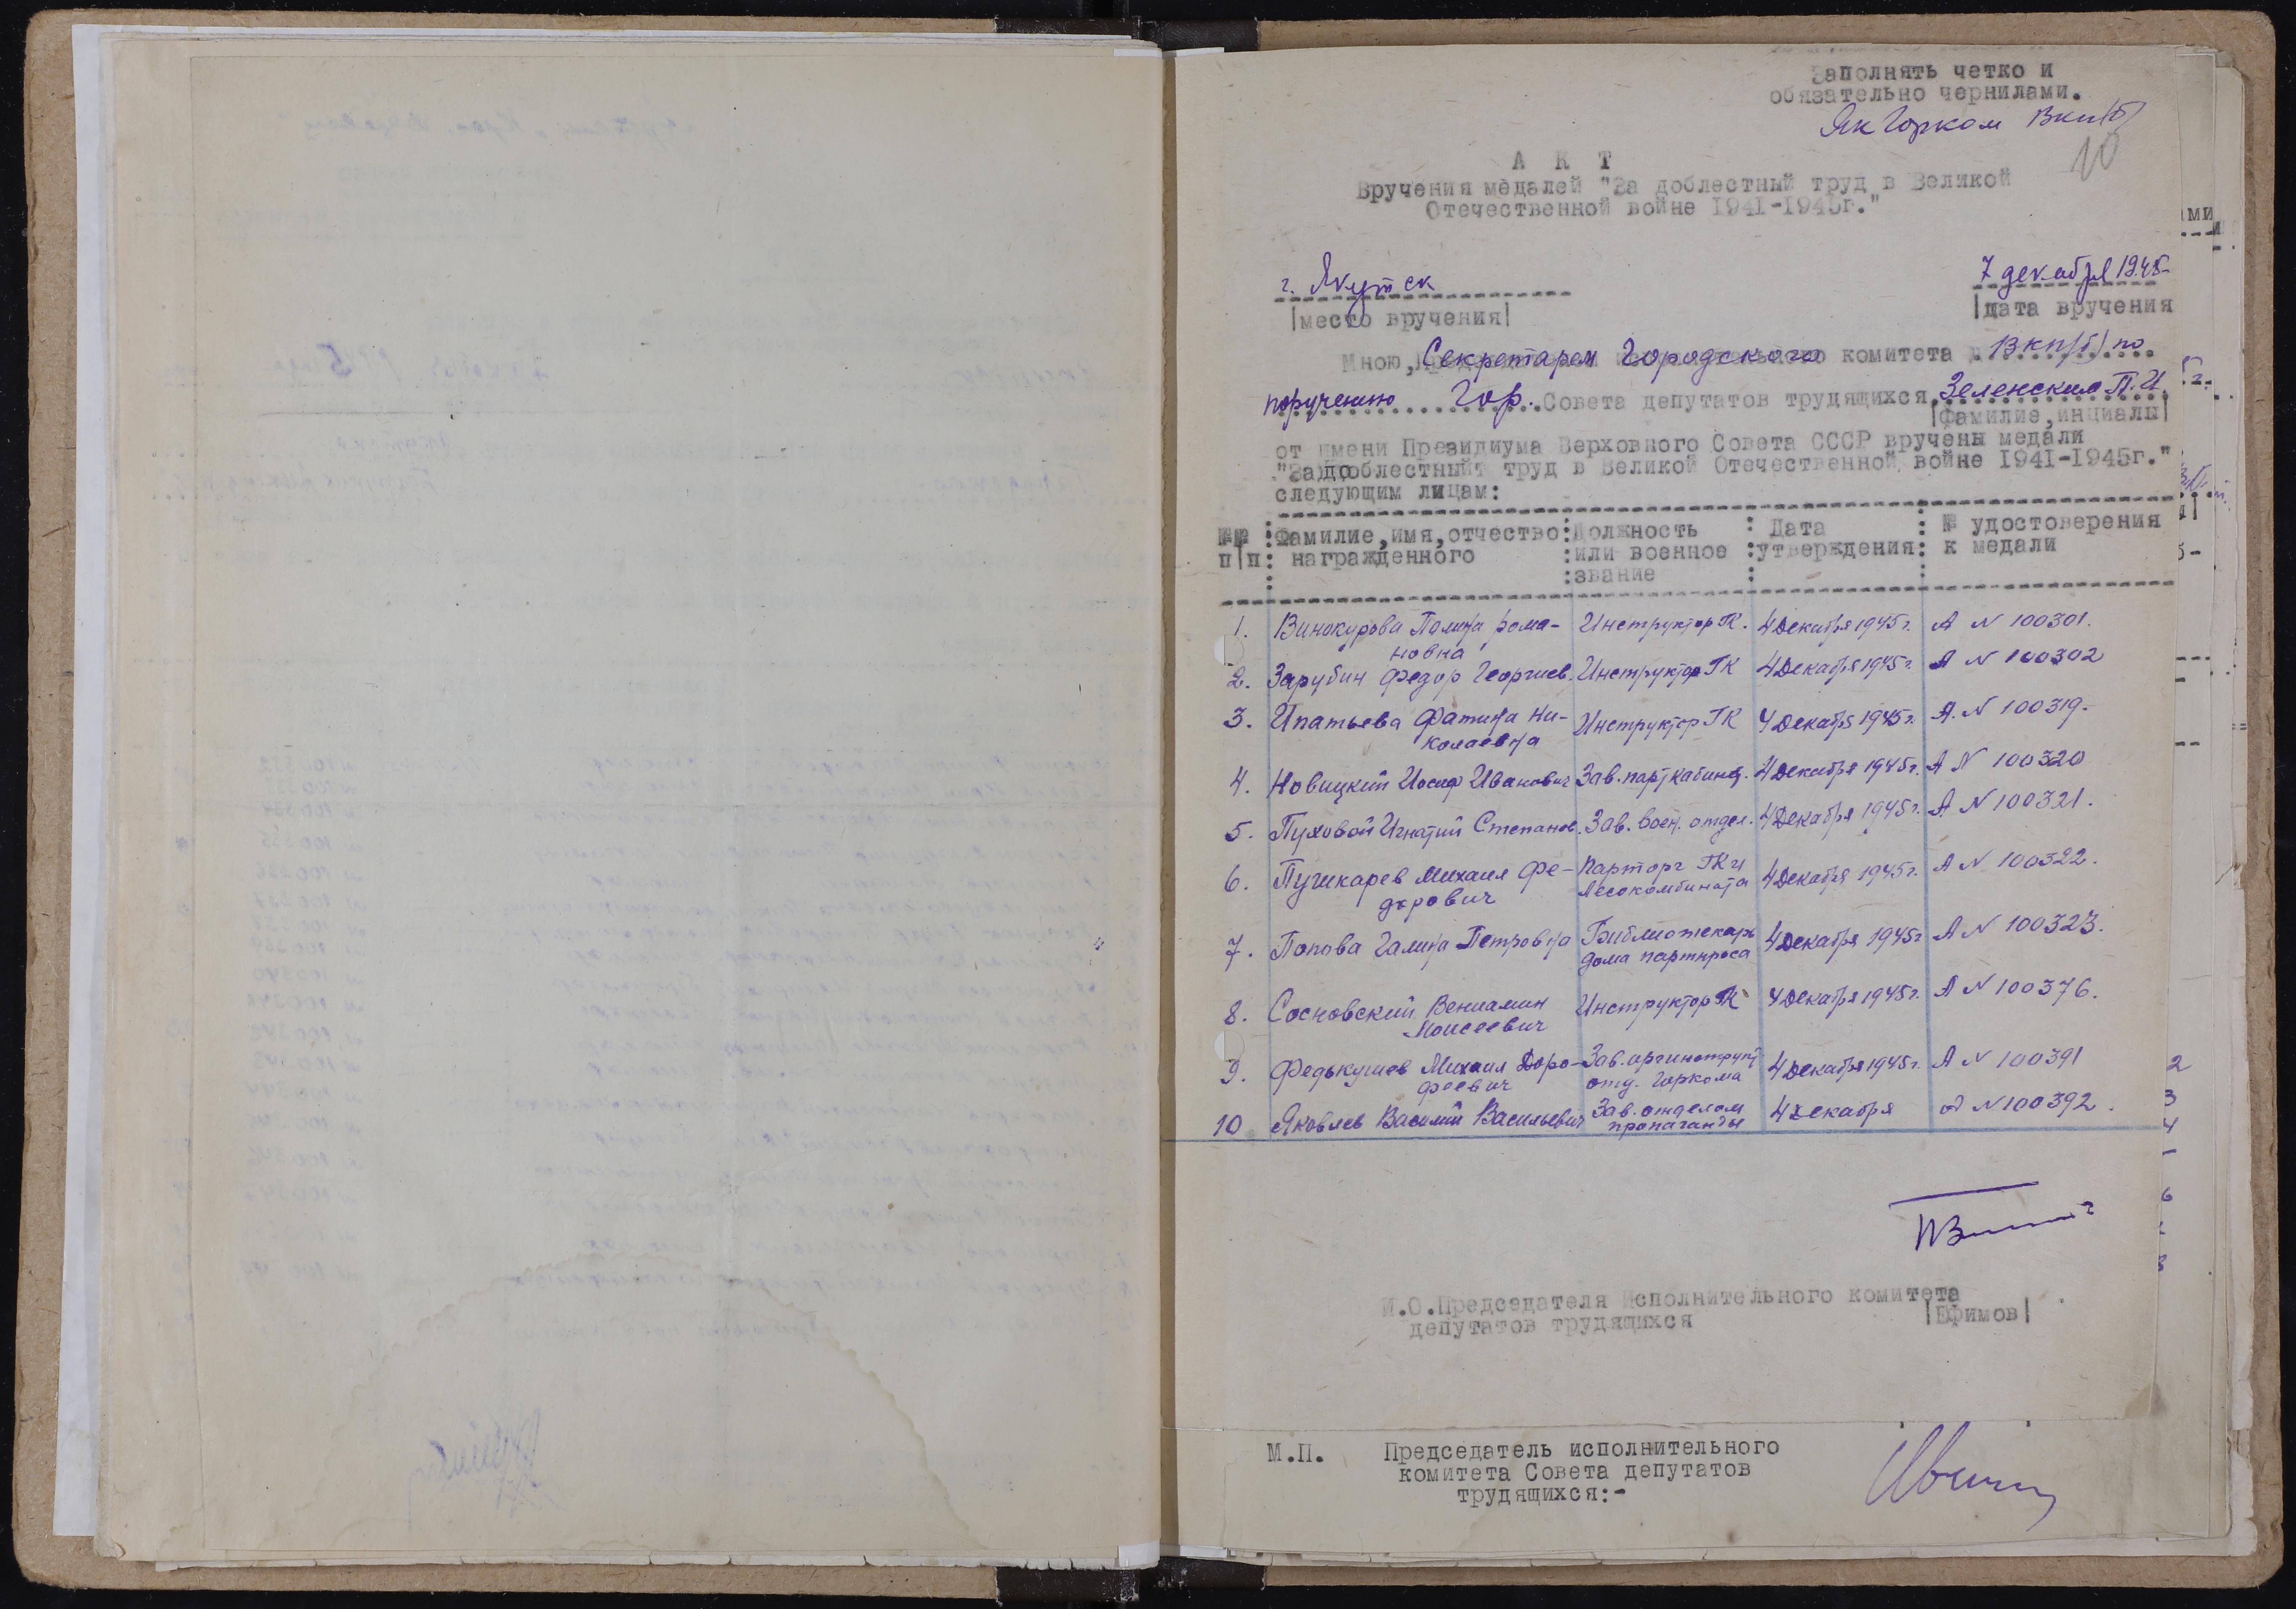 Заполнять четко и
обязательно чернилами.
Як Горком ВКП(б)
10
А К Т
Вручения медалей "За доблестный труд в Великой
Отечественной войне 1941-1945г."
г. Якутск
7 декабря 1945
|место вручения|
|дата вручения
Мною, Секретарем Городского комитета ВКП(б) по
поручению Гор. Совета депутатов трудящихся, Зеленским П.И.
|фамилие,инциалы|
от имени Президиума Верховного Совета СССР вручены медали
"За доблестный труд в Великой Отечественной войне 1941-1945г."
следующим лицам:
№№ Фамилие,имя,отчество Должность Дата № удостоверения
п|п награжденного или военное утверждения к медали
звание
1. Винокурова Полина Рома- Инструктор ГК. 4 Декабря 1945 г. А N 100301.
новна
2. Зарубин Федор Георгиев. Инструктор ГК 4 Декабря 1945 г. А N 100302
3. Ипатьева Фатина Ни- Инструктор ГК 4 Декабря 1945 г. А. N 100319.
колаевна
4. Новицкий Иосиф Иванович Зав. парткабинет. 4 Декабря 1945 г. А N 100320
5. Пуховой Игнатий Степанов. Зав. воен. отдел. 4 Декабря 1945 г. А N 100321.
6. Пушкарев Михаил Фе- Парторг ГК и 4 Декабря 1945 г. А N 100322.
дорович Лесокомбината
7. Попова Галина Петровна Библиотекарь 4 Декабря 1945 г А N 100323.
дома партпроса
8. Сосновский Вениамин Инструктор ГК 4 Декабря 1945 г. А N 100376.
Моисеевич
9. Федькушев Михаил Доро- Зав. оргинструкт 4 Декабря 1945 г. А N 100391
феевич отд. Горкома
10 Яковлев Василий Васильевич Зав. отделом 4 Декабря А N 100392.
пропаганды
И.О.Председателя Исполнительного комитета
депутатов трудящихся |Ефимов|
М.П. Председатель исполнительного
комитета Совета депутатов
трудящихся:-